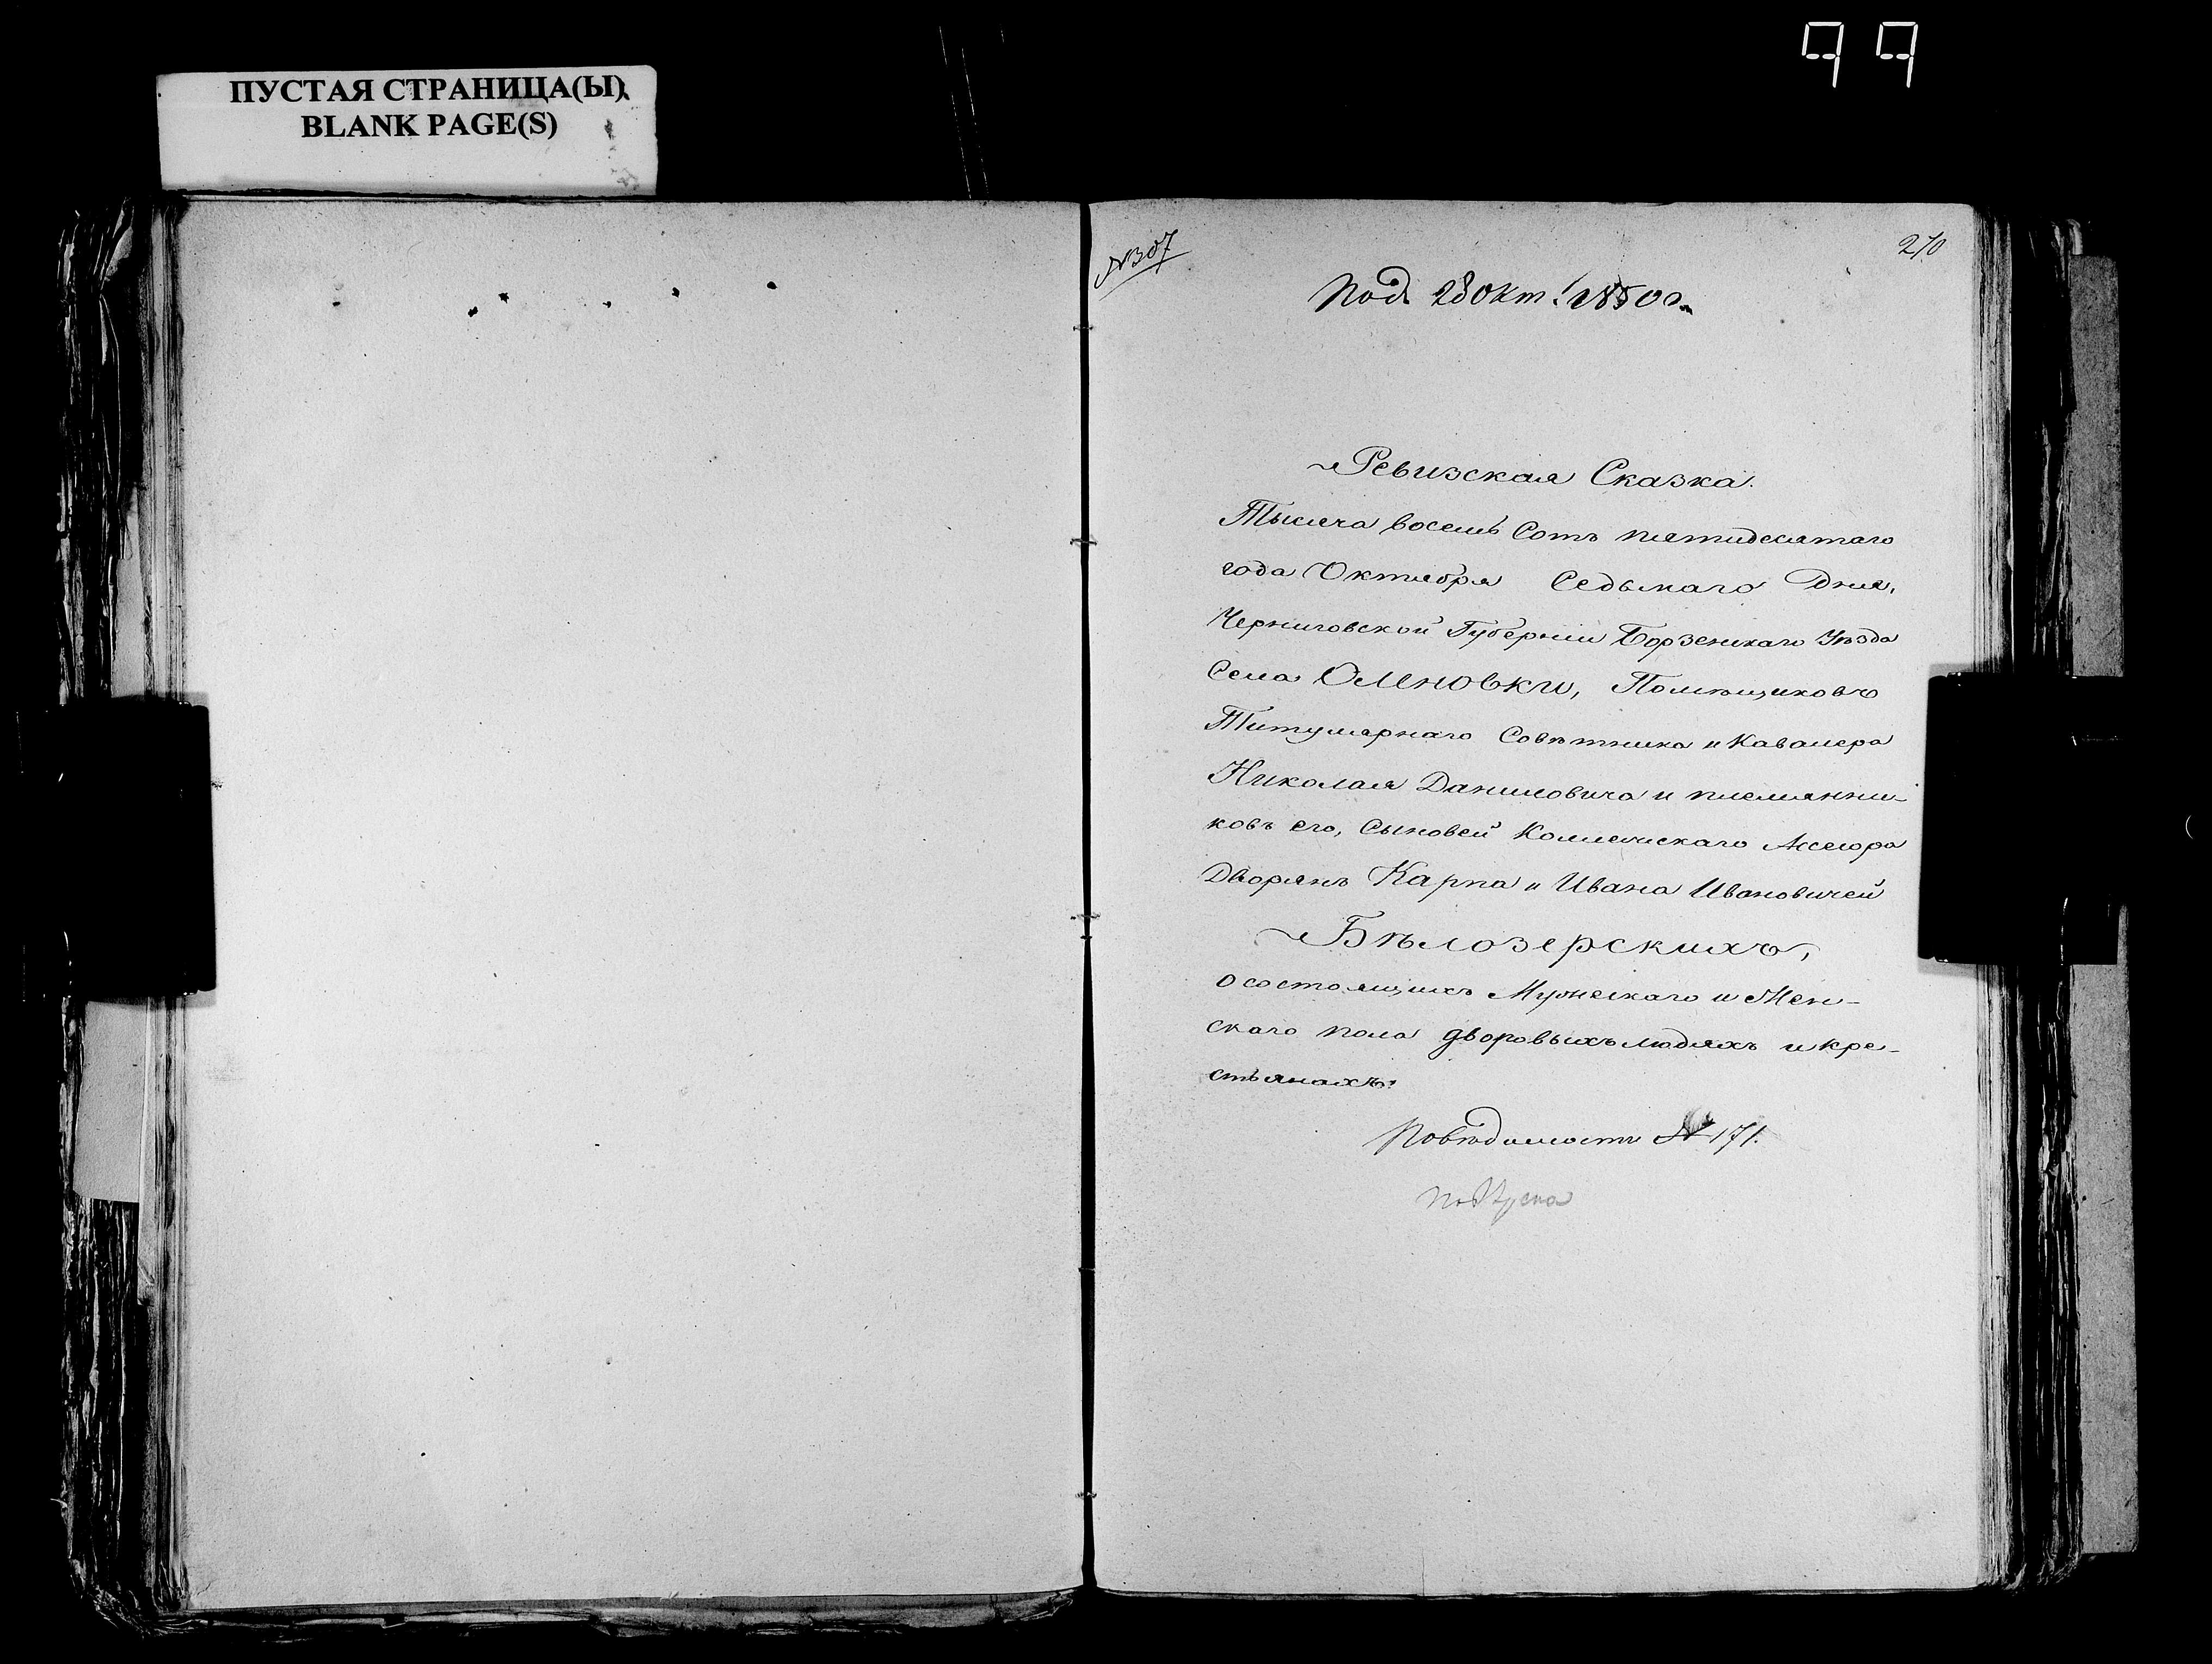 ПУСТАЯ СТРАНИЦА(Ы)
BLANK PAGE(S)
99
№307
270
Под. 28 Окт. 1850 г.
Ревизская Сказка.
Тысяча восемь Сотъ пятидесятаго
года Октября Седьмаго Дня,
Черниговской Губерніи Борзенскаго Уѣзда
Села Оленовки, Помѣщиковъ
Титулярнаго Совѣтника и Кавалера
Николая Даниловича и племянни-
ковъ его, Сыновей Коллежскаго Ассесора
Дворянъ Карпа и Ивана Ивановичей
Бѣлозерскихъ,
о состоящихъ Мужескаго и Жен-
скаго пола дворовыхъ людяхъ и кре-
стьянахъ.
По вѣдомости № 171.